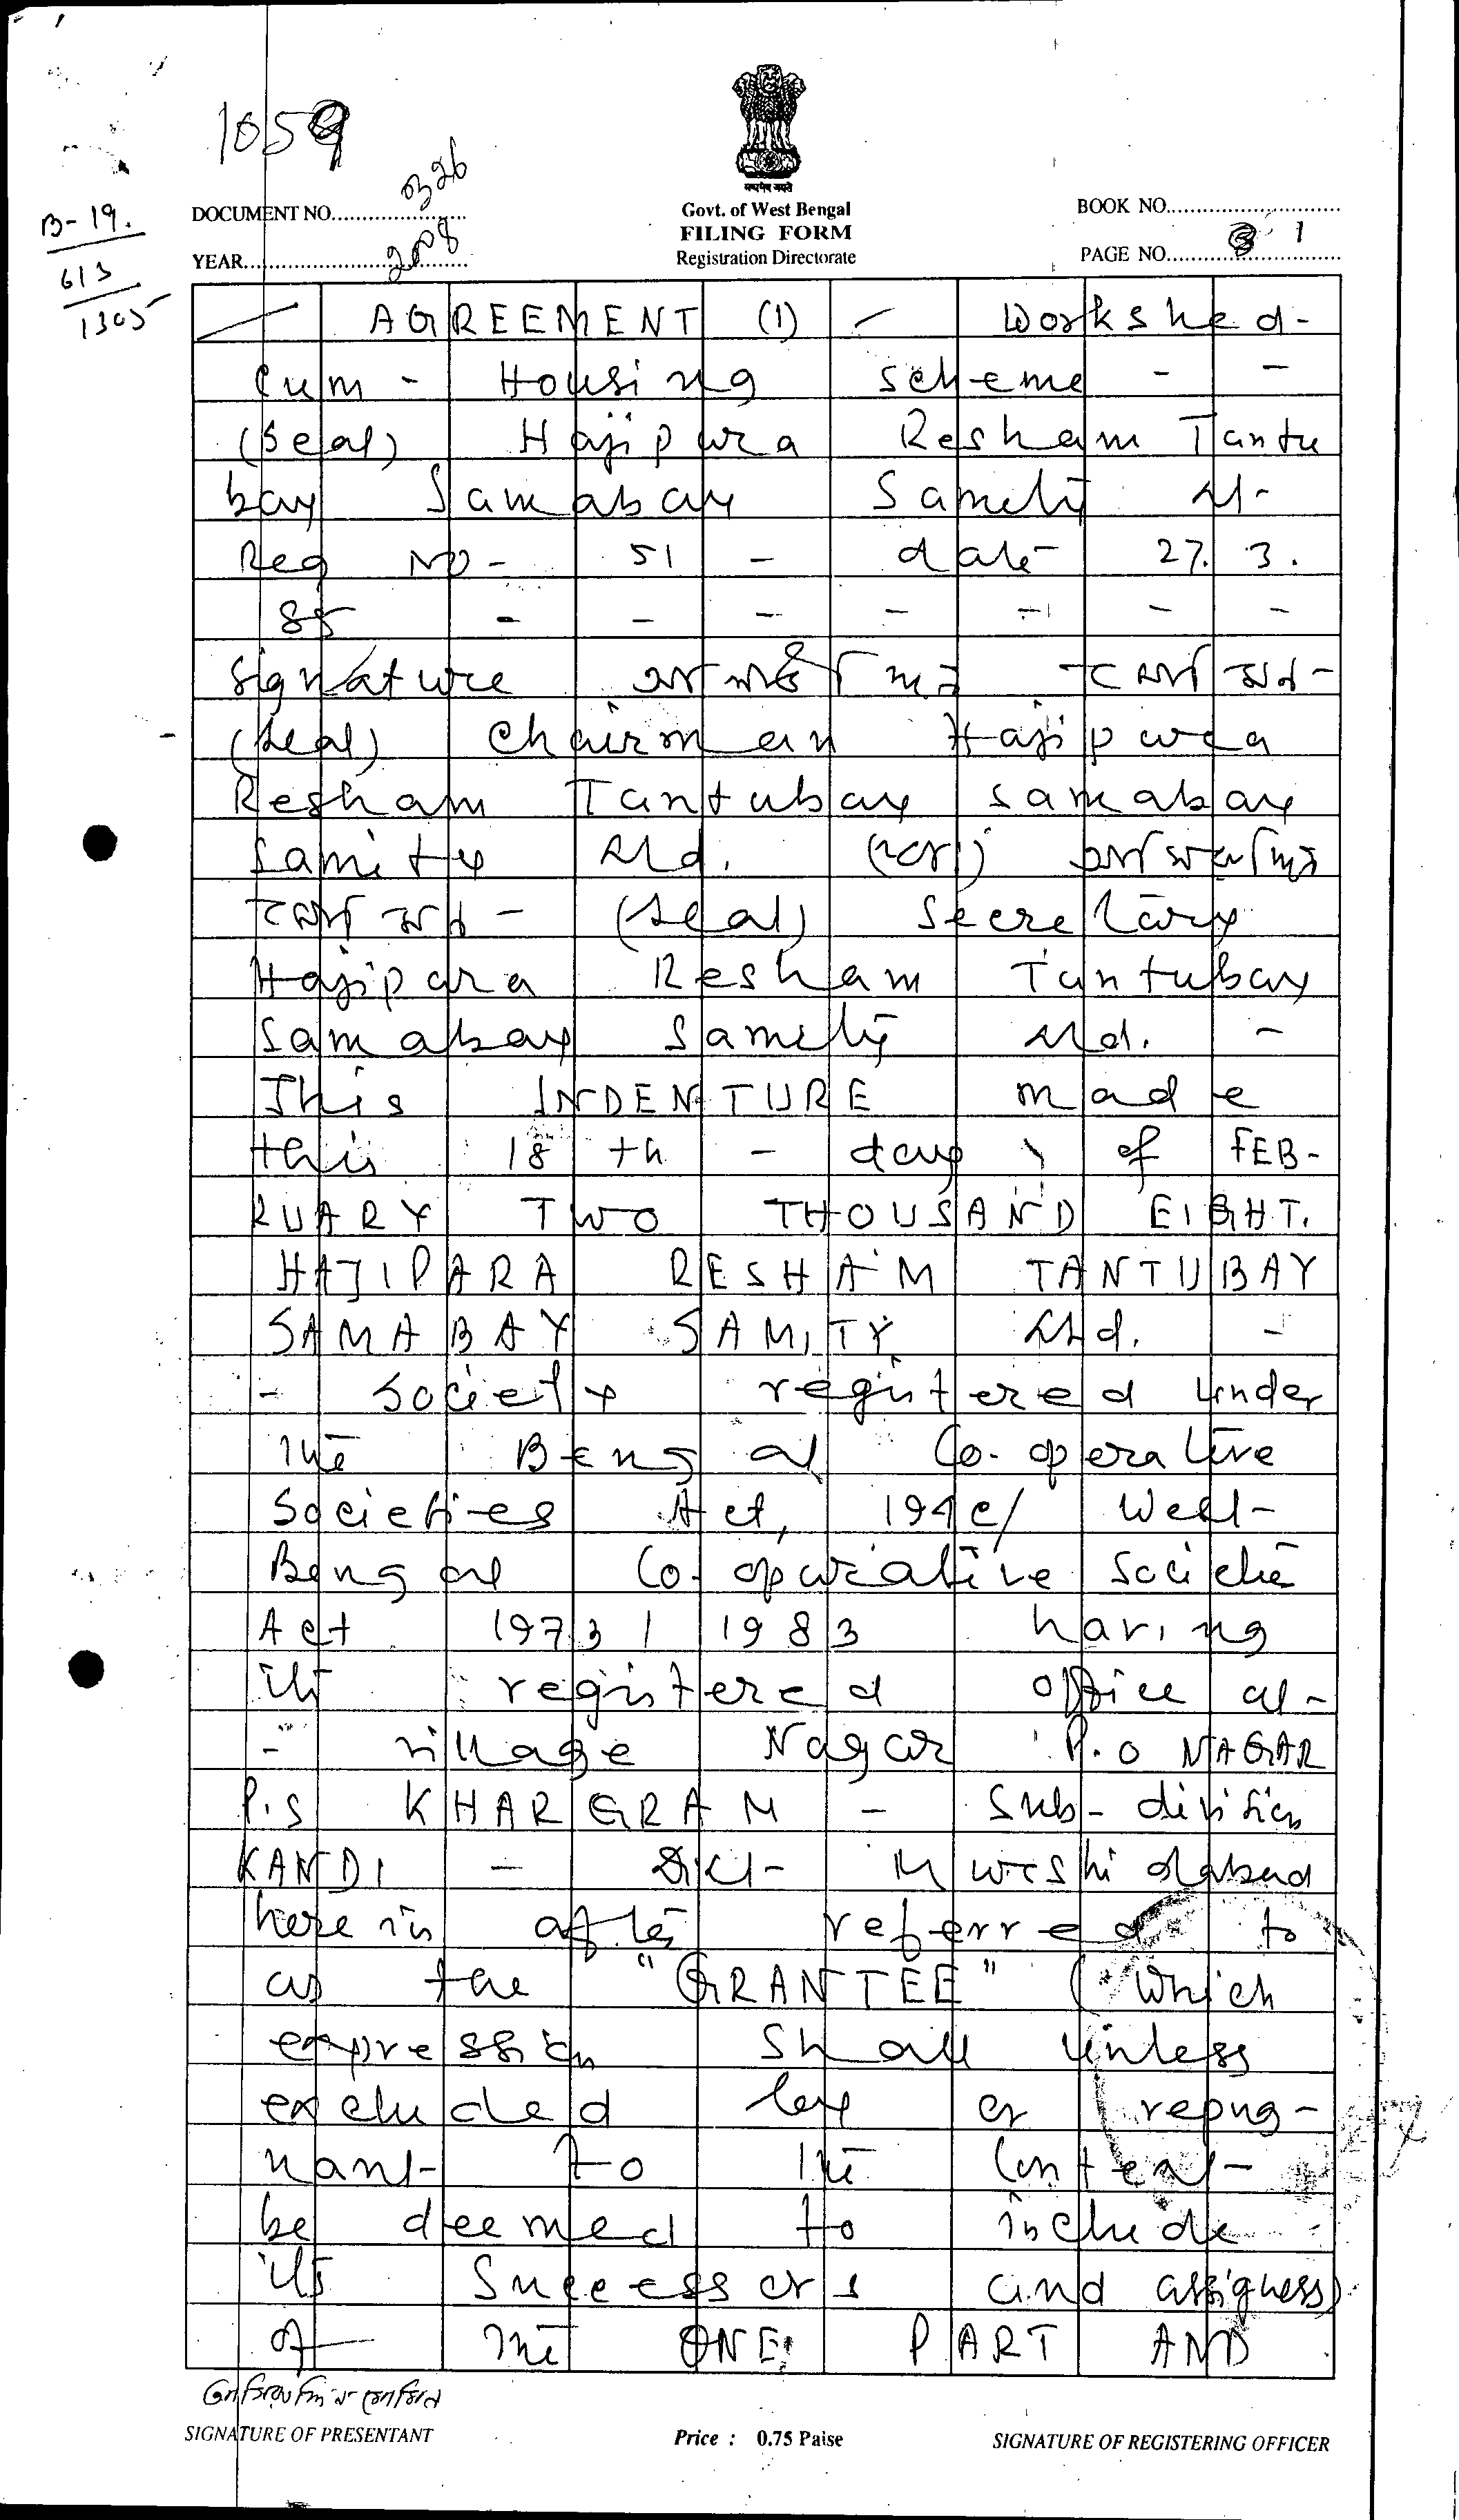 1059
B-19.
613
1305
सत्यमेव जयते
Govt. of West Bengal
FILING FORM
Registration Directorate
DOCUMENT NO. 0326
YEAR 2008
BOOK NO.
PAGE NO. 1
AGREEMENT (1) - Workshed-
Cum - Housing Scheme - -
(Seal) Hajipara Resham Tantu
bay Samabay Samity Ltd-
Reg NO - 51 - date 27. 3.
85 - - - - - - -
Signature
(Seal) Chairman Hajipara
Resham Tantubay Samabay
Samity Ltd.
(Seal) Secretary
Hajipara Resham Tantubay
Samabay Samity Ltd. -
This INDENTURE made
this 18 th - day of FEB-
RUARY TWO THOUSAND EIGHT.
HAJIPARA RESHAM TANTUBAY
SAMABAY SAMITY Ltd. -
- Society registered under
the Bengal Co-operative
Societies Act, West-
Bengal Co-operative Societie
Act 1973 / 1983 having
its registered office at-
- village Nagar P.O NAGAR
P.S KHARGRAM - Sub-division
KANDI - Dist- Murshidabad
herein after referred to
as the "GRANTEE" (which
expression shall unless
excluded by or repug-
nant- to the Context-
be deemed to include
its Successors and assigness)
of the ONE PART AND
SIGNATURE OF PRESENTANT
Price : 0.75 Paise
SIGNATURE OF REGISTERING OFFICER